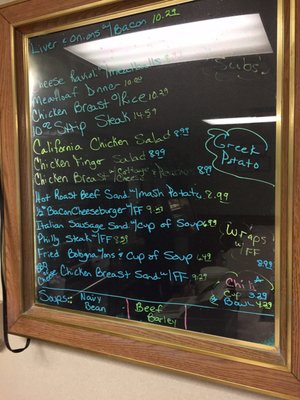 Liver & Onions w/ Bacon 10.29
Cheese Ravioli w/ Meatballs
Meatloaf Dinner 10.29
Chicken Breast o/ Rice 10.29
10oz Strip Steak 14.59
California Chicken Salad 8.99
Chicken Fingo Salad 8.99
Chicken Breast w/ Cottage Cheese 8.99
Hot Roast Beef Sand. w/ mash Potato 2.99
½ lb Bacon Cheeseburger w/ FF 9.29
Italian Sausage Sand w/ cup of Soup 6.99
Philly Steak w/ FF 8.29
Fried Bologna/ons & Cup of Soup 6.49
BBQ Cheese Chicken Breast Sand w/ FF 9.29
Soups: Navy Bean
Beef Barley
Subs
Greek
Potato
Wraps
w/ FF
8.99
Chili
Cup 3.29
Bowl 4.29